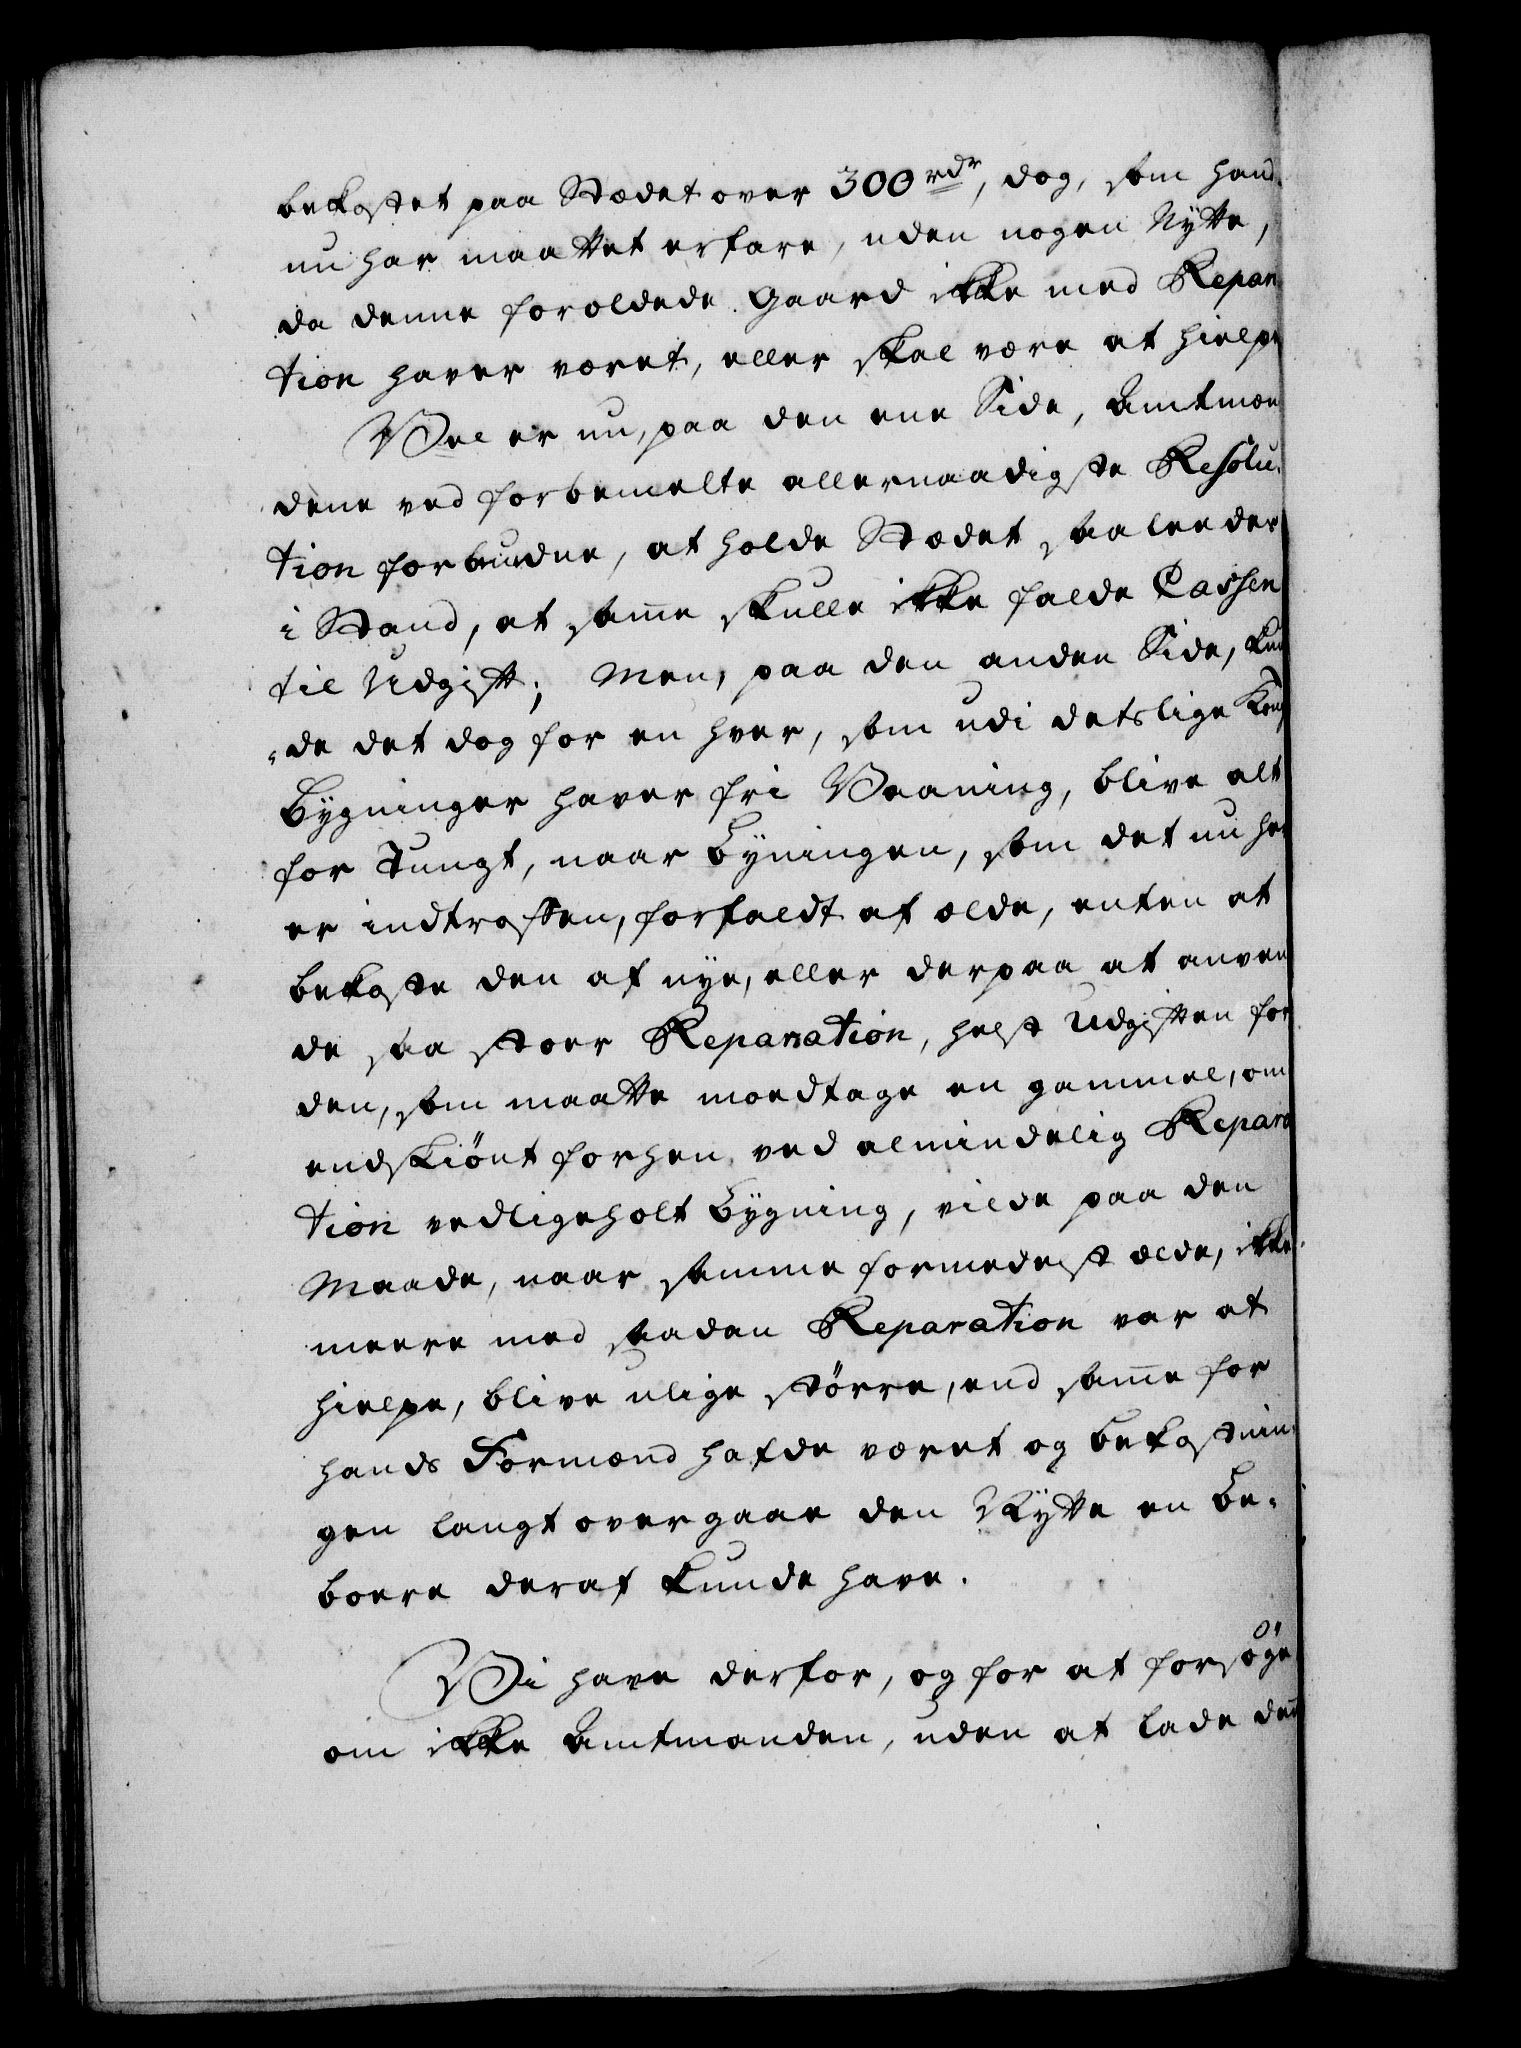 bekostet paa Stædet over 300 rdr, dog, som hand
nu har maattet erfare, uden nogen Nÿtte,
da denne forældede Gaard ikke med Repara
tion haver været, eller skal være at hielpe
Vel er nu, paa den ene Side, Amtmæn
dene ved forbemelte allernaadigste Resolu-
tion forbudne, at holde Stædet saaleedes
i Stand, at same skulle ikke falde Cassen
til Udgift; Men, paa den anden Side, kun
de det dog for en hver, som udi detslige
Bÿgninger haver fri Vaaning, blive alt
for Tungt, naar Bÿningen, som det nu her
er indtroffen, forfaldt af ælde, enten at
bekoste den af nÿe, eller derpaa at anven
de saa stoer Reparation, helst Udgiften for
den, som maatte modtage en gammel, om
endskiönt forhen ved almindelig Repara
tion vedligeholt Bÿgning, vilde paa den
Maade, naar samme formedelst ælde, ikke
meere med saadan Reparation var at
hielpe, blive ulige större, end same for
hands Formænd hafde været og bekostnin-
gen langt overgaae den Nÿtte en Be-
boere deraf kunde have.
Vi have derfor, og for at forsöge
om ikke Amtmanden, uden at lade den